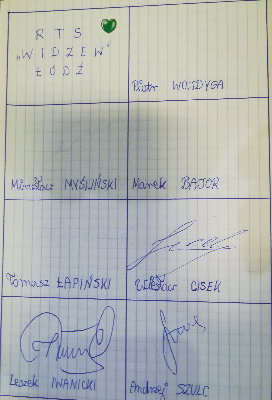 RTS
„WIDZEW"
ŁÓDŹ
Piotr WOJDYGA
Mirosław MYŚLIŃSKI
Marek BAJOR
Tomasz ŁAPIŃSKI
Wiesław CISEK
Leszek IWANICKI
Andrzej SZULC